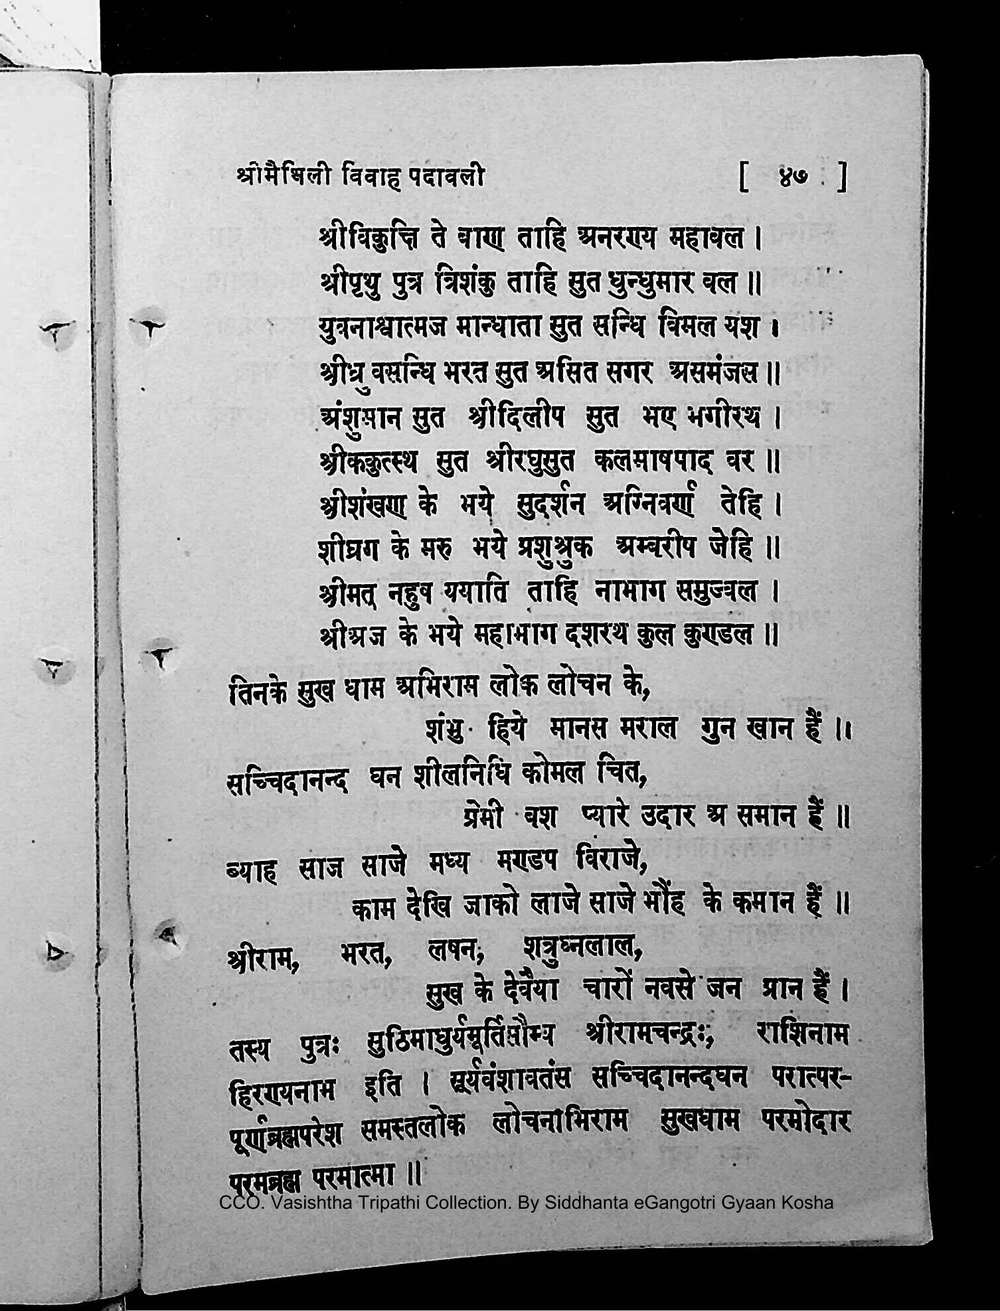 श्रीमैथिली विवाह पदावली [ ४७ ]
श्रीविकुक्षि ते वाण ताहि अनरण्य महावल ।
श्रीपृथु पुत्र त्रिशंकु ताहि सुत धुन्धुमार वल ॥
युवनाश्वात्मज मान्धाता सुत सन्धि विमल यश ।
श्रीध्रुवसन्धि भरत सुत असित सगर असमंजस ॥
अंशुमान सुत श्रीदिलीप सुत भए भगीरथ ।
श्रीककुत्स्थ सुत श्रीरघुसुत कलमाषपाद वर ॥
श्रीशंखण के भये सुदर्शन अग्निवर्ण तेहि ।
शीघ्रग के मरु भये प्रशुश्रुक अम्वरीप जेहि ॥
श्रीमत् नहुष ययाति ताहि नाभाग समुज्वल ।
श्रीअज के भये महाभाग दशरथ कुल कुण्डल ॥
तिनके सुख धाम अभिराम लोक लोचन के,
शंभु हिये मानस मराल गुन खान हैं ॥
सच्चिदानन्द घन शीलनिधि कोमल चित,
प्रेमी वश प्यारे उदार अ समान हैं ॥
ब्याह साज साजे मध्य मण्डप विराजे,
काम देखि जाको लाजे साजे भौंह के कमान हैं ॥
श्रीराम, भरत, लषन, शत्रुघ्नलाल,
सुख के देवैया चारों नवसे जन प्रान हैं ।
तस्य पुत्रः सुठिमाधुर्यमूर्तिसौम्य श्रीरामचन्द्रः, राशिनाम
हिरण्यनाभ इति । सूर्यवंशावतंस सच्चिदानन्दघन परात्पर-
पूर्णब्रह्मपरेश समस्तलोक लोचनाभिराम सुखधाम परमोदार
परमब्रह्म परमात्मा ॥
CCO. Vasishtha Tripathi Collection. By Siddhanta eGangotri Gyaan Kosha